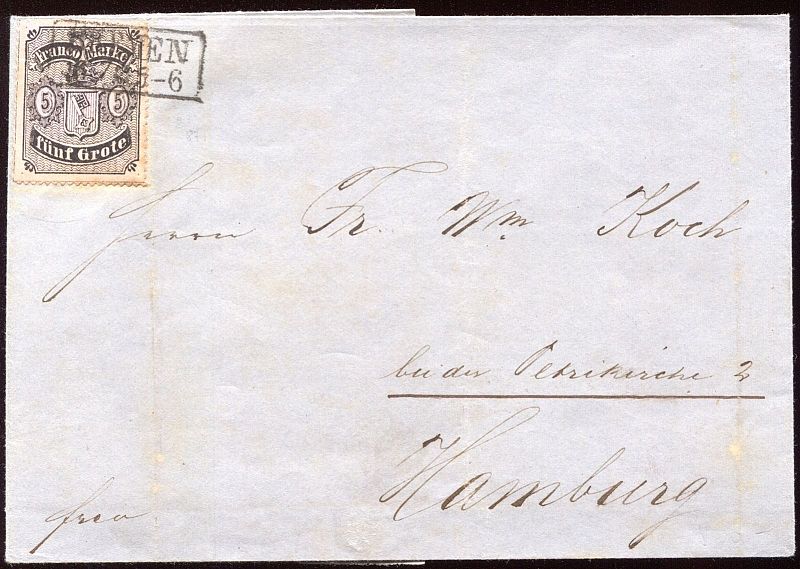 Franco Marke
5 5
fünf Grote
5-6
Herrn Fr. Wm. Koch
bei der Petrikirche 2
Hamburg
frco